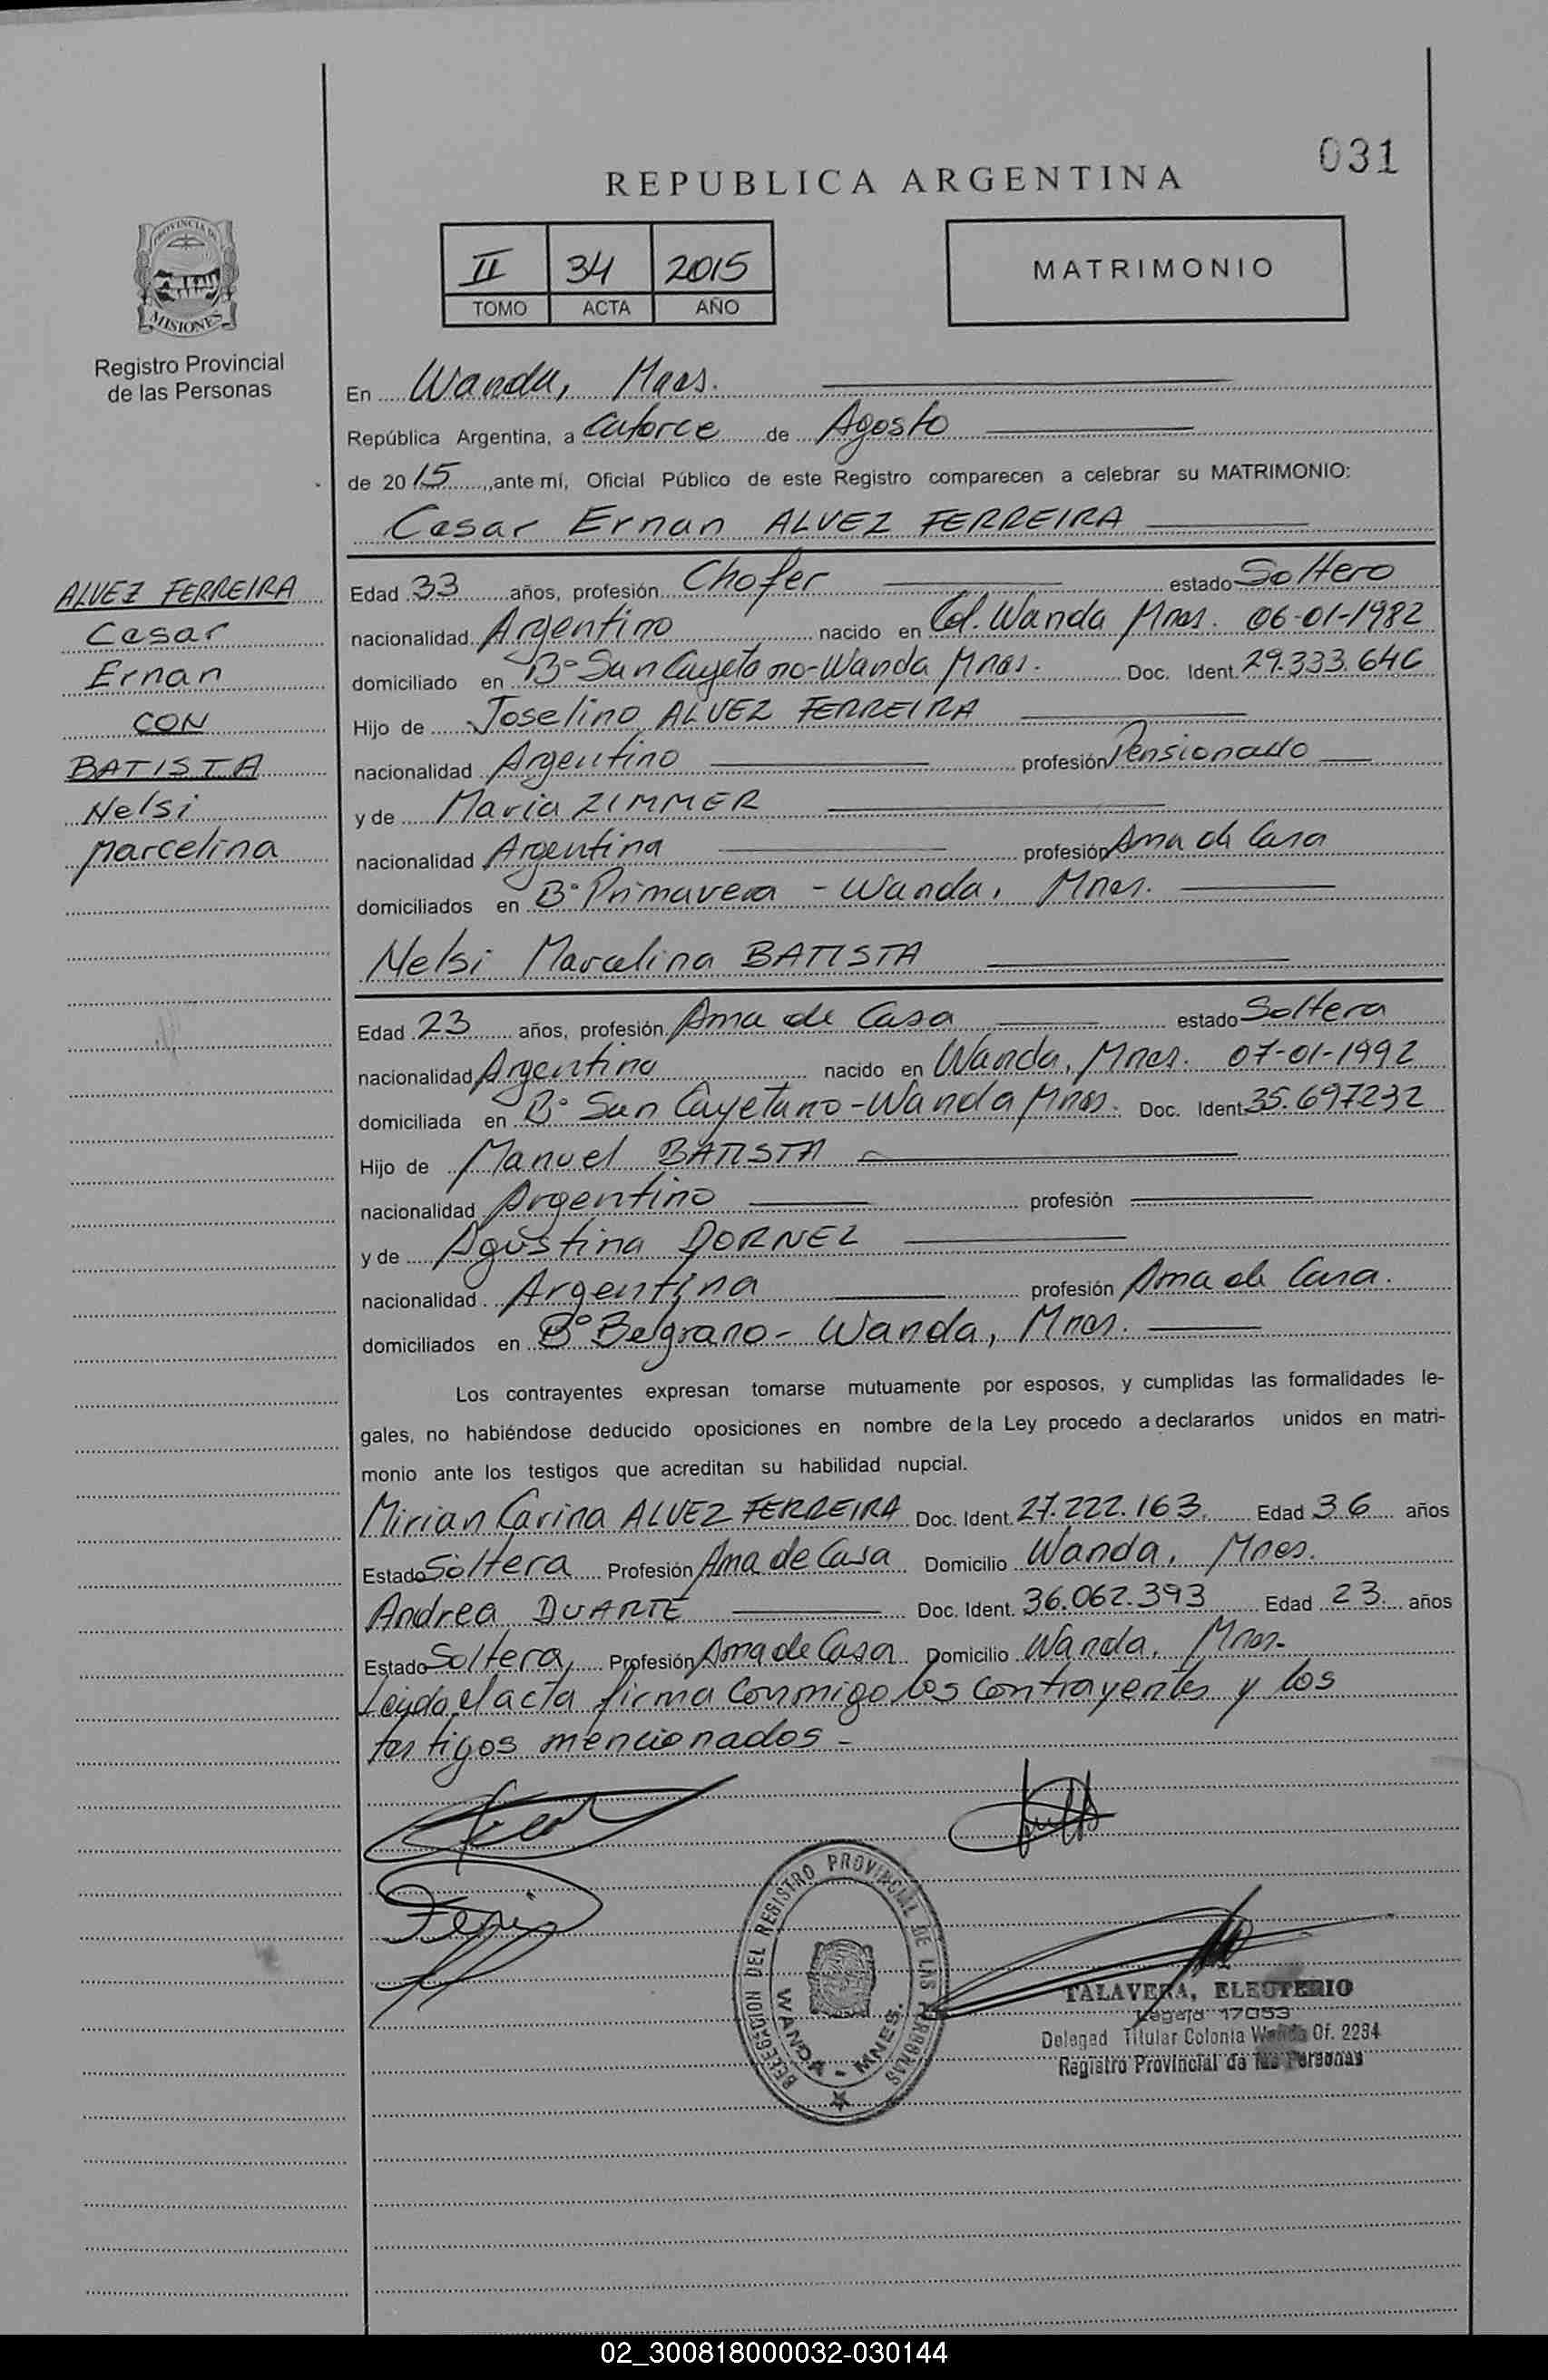 031
REPUBLICA ARGENTINA
PROVINCIA DE
MISIONES
Registro Provincial
de las Personas
II 34 2015
TOMO ACTA AÑO
MATRIMONIO
En Wanda, Mnes.
República Argentina, a Catorce de Agosto
de 2015, ante mí, Oficial Público de este Registro comparecen a celebrar su MATRIMONIO:
Cesar Ernan ALVEZ FERREIRA
ALVEZ FERREIRA
Cesar
Ernan
CON
BATISTA
Nelsi
Marcelina
Edad 33 años, profesión Chofer estado Soltero
nacionalidad Argentino nacido en Col. Wanda Mnes. 06-01-1982
domiciliado en B° San Cayetano-Wanda Mnes. Doc. Ident. 29.333.646
Hijo de Joselino ALVEZ FERREIRA
nacionalidad Argentino profesión Pensionado
y de Maria ZIMMER
nacionalidad Argentina profesión Ama de Casa
domiciliados en B° Primavera - Wanda, Mnes.
Nelsi Marcelina BATISTA
Edad 23 años, profesión Ama de Casa estado Soltera
nacionalidad Argentina nacido en Wanda, Mnes. 07-01-1992
domiciliada en B° San Cayetano-Wanda Mnes. Doc. Ident. 35.697232
Hijo de Manuel BATISTA
nacionalidad Argentino profesión
y de Agustina DORNEZ
nacionalidad Argentina profesión Ama de Casa.
domiciliados en B° Belgrano- Wanda, Mnes.
Los contrayentes expresan tomarse mutuamente por esposos, y cumplidas las formalidades le-
gales, no habiéndose deducido oposiciones en nombre de la Ley procedo a declararlos unidos en matri-
monio ante los testigos que acreditan su habilidad nupcial.
Mirian Carina ALVEZ FERREIRA Doc. Ident. 27.222.163. Edad 36 años
Estado Soltera Profesión Ama de Casa Domicilio Wanda, Mnes.
Andrea DUARTE Doc. Ident. 36.062.393 Edad 23 años
Estado Soltera Profesión Ama de Casa Domicilio Wanda, Mnes.
Leida el acta firma conmigo los contrayentes y los
testigos mencionados -
DELEGACION DEL REGISTRO PROVINCIAL DE LAS PERSONAS
WANDA - MNES.
TALAVERA, ELEUTERIO
Legajo 17053
Delegad Titular Colonia Wanda Of. 2234
Registro Provincial de las Personas
02_300818000032-030144